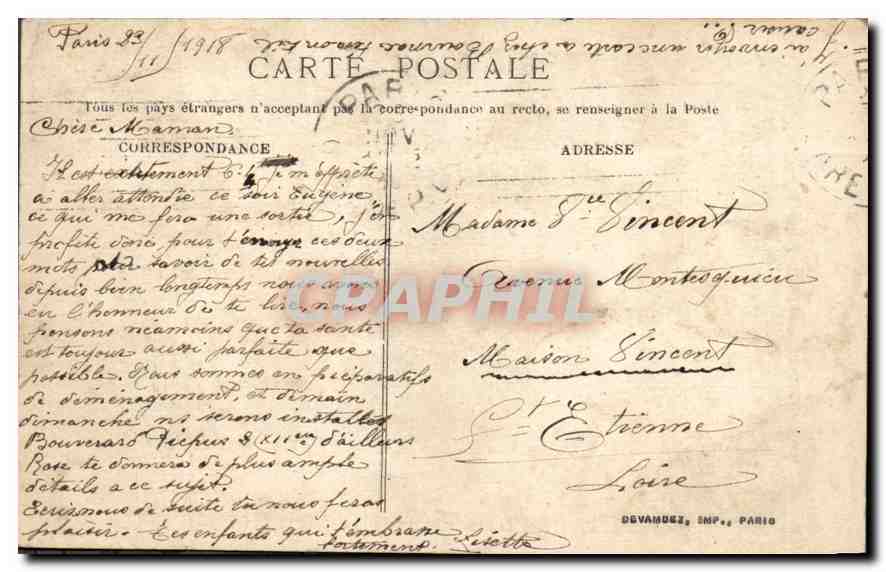 Paris 23/11/1918
J'ai envoyer une carte a chez
CARTE POSTALE
Tous les pays étrangers n'acceptant pas la correspondance au recto, se renseigner à la Poste
Chère Maman
CORRESPONDANCE
Il est exactement 6 h je m'apprête
a aller attendre ce soir Eugène
ce qui me fera une sortie, j'en
profite donc pour t'envoyer ces deux
mots pour savoir de tes nouvelles
depuis bien longtemps nous avons
eu l'honneur de te lire, nous
pensons néamoins que ta santé
est toujour aussi parfaite que
possible. Nous sommes en préparatifs
de déménagement, et demain
dimanche ns serons installés
Bouverard Picpus 8 (XII eme) d'ailleurs
Rose te donnera de plus ample
détails a ce sujet.
Ecris nous de suite tu nous feras
plaisir. Tes enfants qui t'embrasse
fortement. Lisette
ADRESSE
Madame Vve Vincent
Avenue Montesquieu
Maison Vincent
St Etienne
Loire
DEVAMBEZ, IMP., PARIS
CPAPHIL